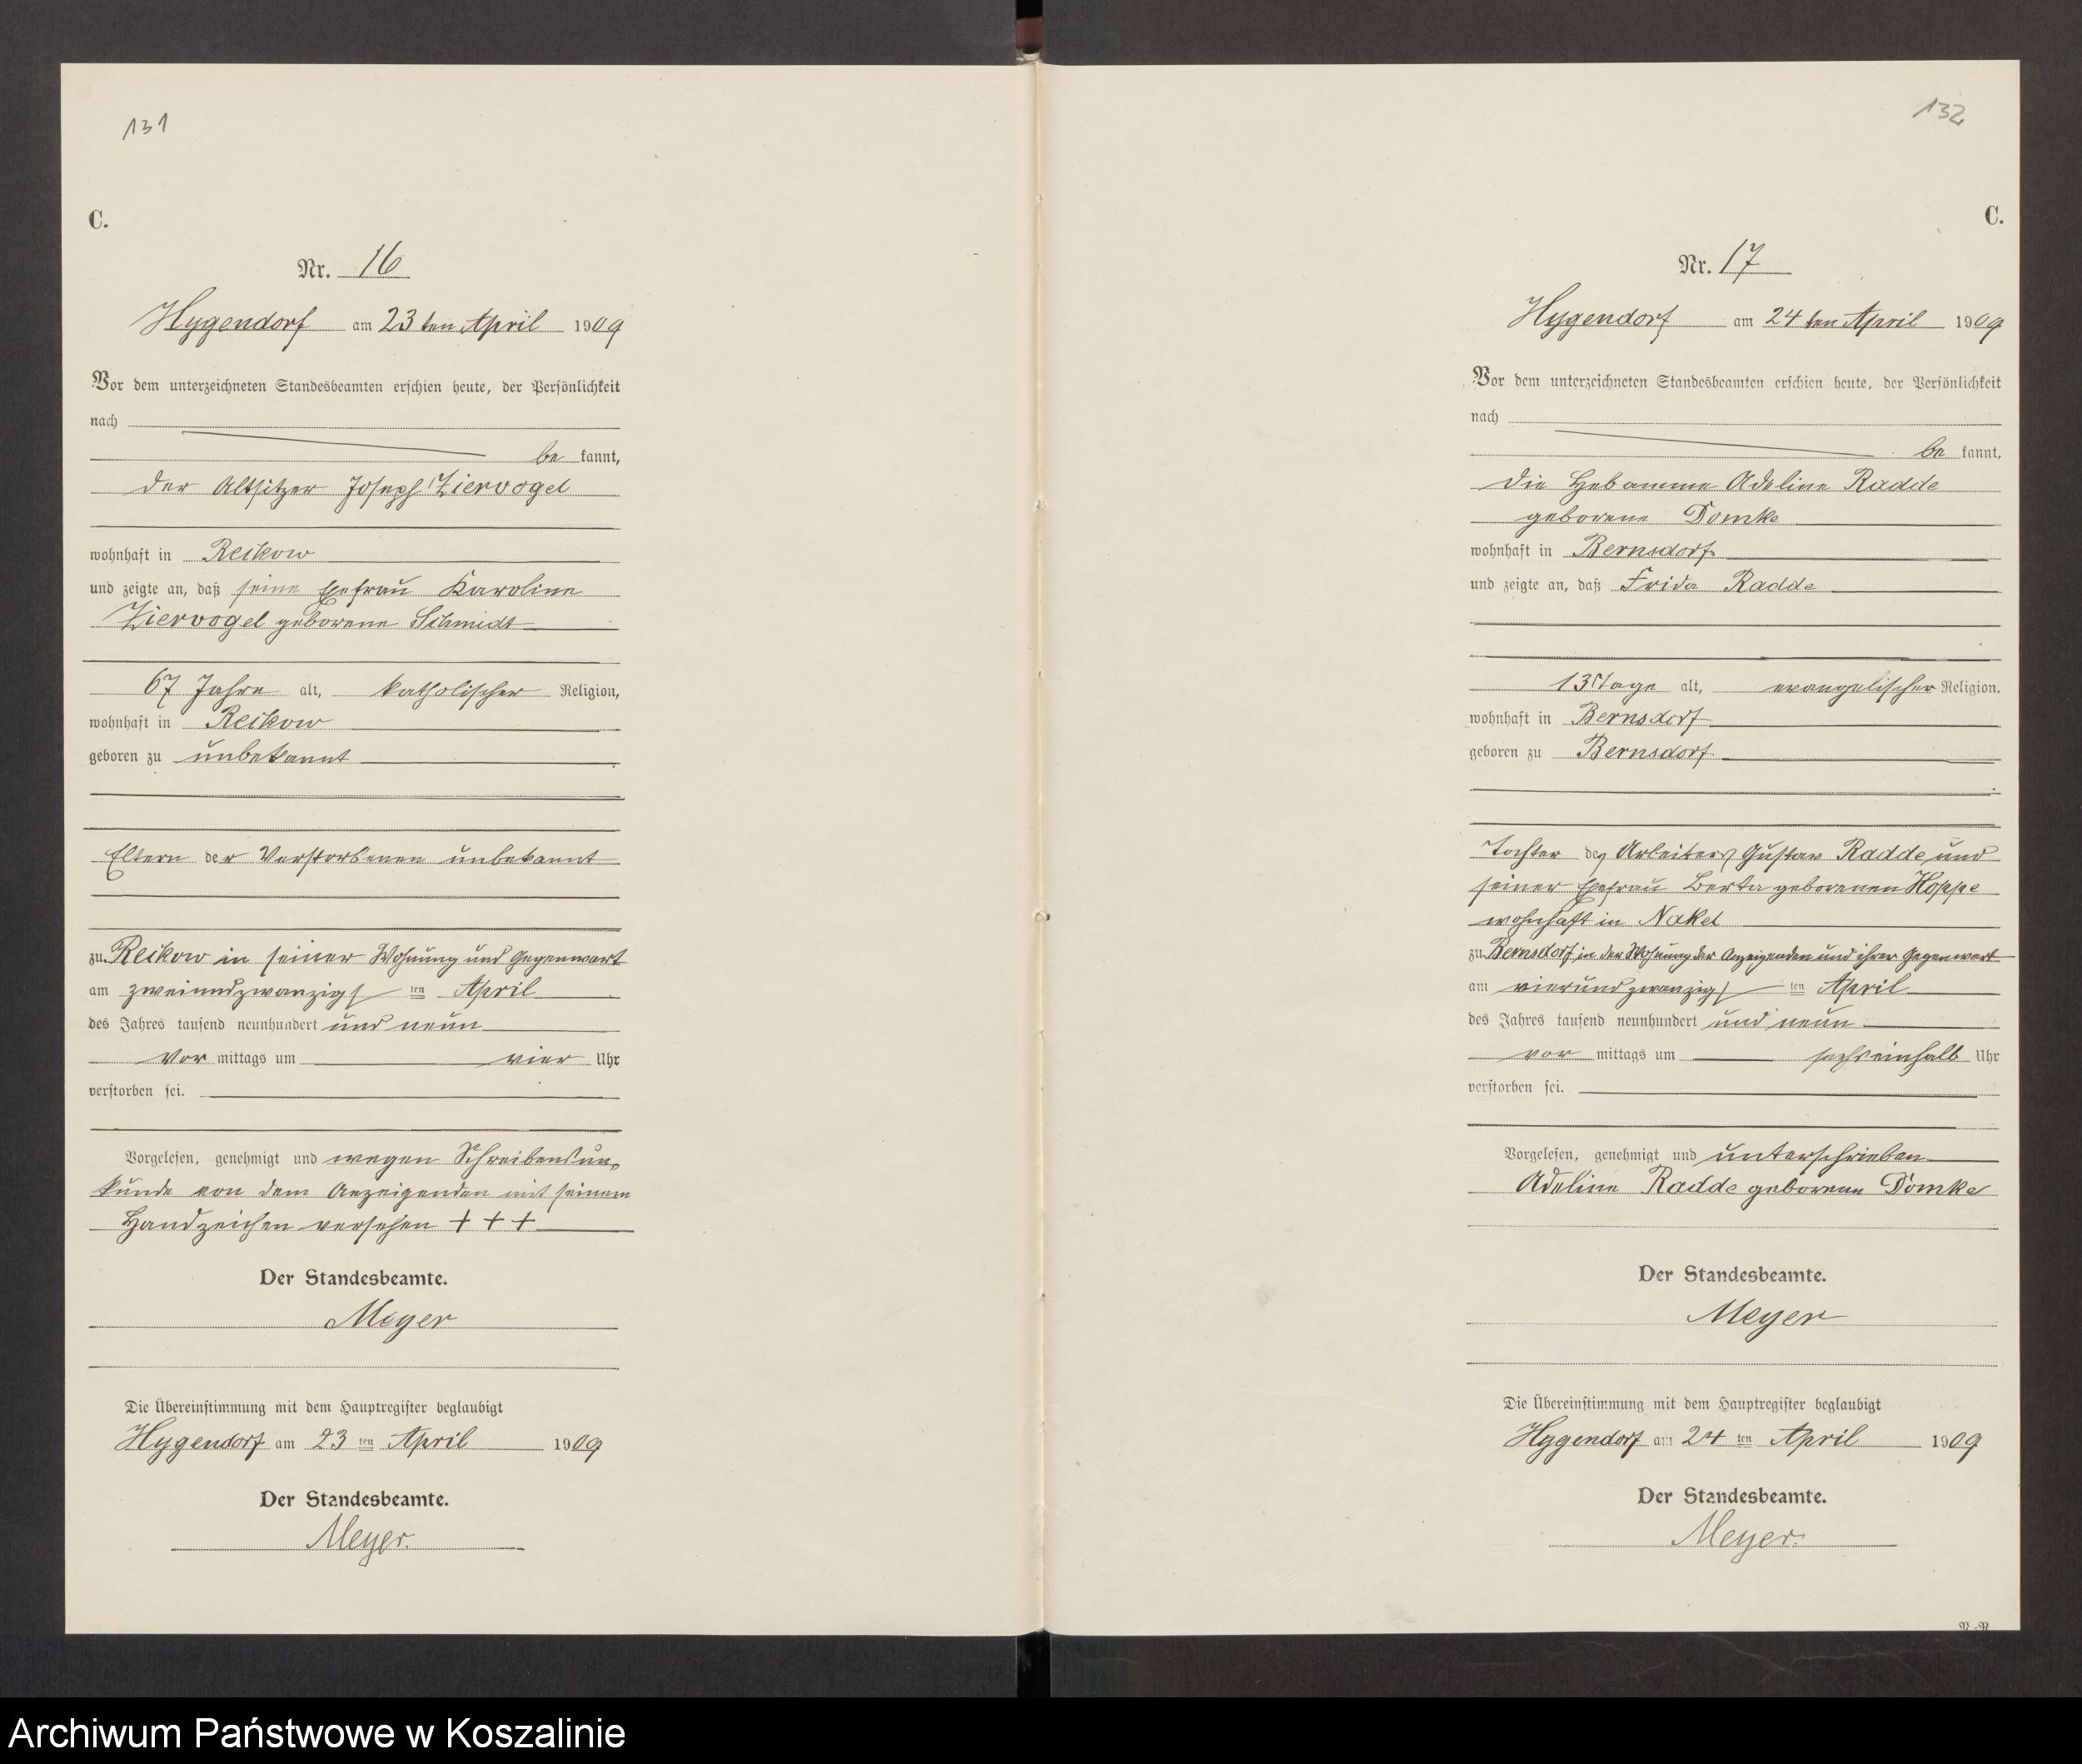 131
C.
Nr. 16
Hygendorf am 23 ten April 1909
Vor dem unterzeichneten Standesbeamten erschien heute, der Persönlichkeit
nach
be kannt,
der Altsitzer Joseph Ziervogel
wohnhaft in Reikow
und zeigte an, daß seine Ehefrau Karoline
Ziervogel geborene Schmidt
67 Jahre alt, katholischer Religion,
wohnhaft in Reikow
geboren zu unbekannt
Eltern der Verstorbenen unbekannt
zu Reikow in seiner Wohnung und Gegenwart
am zweiundzwanzigs ten April
des Jahres tausend neunhundert und neun
Vor mittags um vier Uhr
verstorben sei.
Vorgelesen, genehmigt und wegen Schreibensun-
kunde von dem Anzeigenden mit seinem
Handzeichen versehen + + +
Der Standesbeamte.
Meyer
Die Übereinstimmung mit dem Hauptregister beglaubigt
Hygendorf am 23 ten April 1909
Der Standesbeamte.
Meyer.
132
C.
Nr. 17
Hygendorf am 24 ten April 1909
Vor dem unterzeichneten Standesbeamten erschien heute, der Persönlichkeit
nach
be kannt,
die Hebamme Adeline Radde
geborene Domke
wohnhaft in Bernsdorf
und zeigte an, daß Frida Radde
13 Tage alt, evangelischer Religion,
wohnhaft in Bernsdorf
geboren zu Bernsdorf
Tochter des Arbeiters Gustav Radde und
seiner Ehefrau Berta geborenen Hoppe
wohnhaft in Nakel
zu Bernsdorf in der Wohnung der Anzeigenden und ihrer Gegenwart
am vierundzwanzigs ten April
des Jahres tausend neunhundert und neun
vor mittags um sechseinhalb Uhr
verstorben sei.
Vorgelesen, genehmigt und unterschrieben
Adeline Radde geborene Domke
Der Standesbeamte.
Meyer
Die Übereinstimmung mit dem Hauptregister beglaubigt
Hygendorf am 24 ten April 1909
Der Standesbeamte.
Meyer.
Archiwum Państwowe w Koszalinie